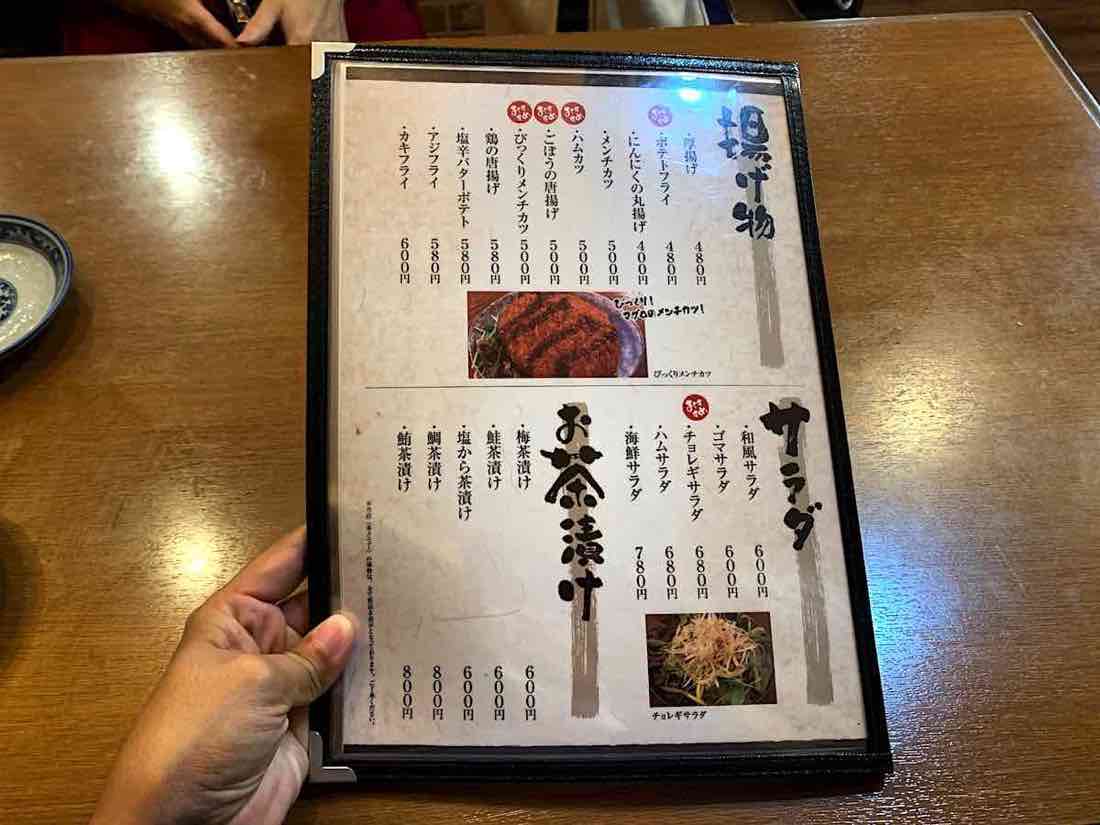 揚げ物
・厚揚げ 480円
おすすめ
・ポテトフライ 480円
・にんにくの丸揚げ 400円
・メンチカツ 500円
おすすめ
・ハムカツ 500円
おすすめ
・ごぼうの唐揚げ 500円
おすすめ
・びっくりメンチカツ 500円
・鶏の唐揚げ 580円
・塩辛バターポテト 580円
・アジフライ 580円
・カキフライ 600円
びっくり!
マグロのメンチカツ!
びっくりメンチカツ
サラダ
・和風サラダ 600円
・ゴマサラダ 600円
おすすめ
・チョレギサラダ 680円
・ハムサラダ 680円
・海鮮サラダ 780円
チョレギサラダ
お茶漬け
・梅茶漬け 600円
・鮭茶漬け 600円
・塩から茶漬け 600円
・鯛茶漬け 800円
・鮪茶漬け 800円